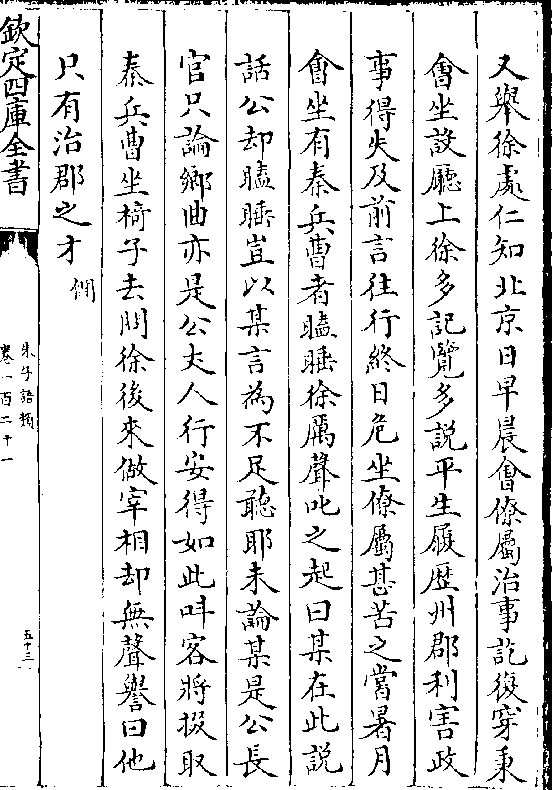 又舉徐處仁知北京日早晨㑹僚屬治事訖復穿秉
㑹坐設廳上徐多記覽多説平生履歴州郡利害政
事得失及前言往行終日危坐僚屬甚苦之嘗暑月
㑹坐有秦兵曹者瞌睡徐厲聲叱之起曰某在此説
話公却瞌睡豈以某言為不足聽耶未論某是公長
官只論鄉曲亦是公丈人行安得如此叫客將掇取
秦兵曹坐椅子去問徐後來做宰相却無聲譽曰他
只有治郡之才 僩
欽定四庫全書
朱子語類
卷一百二十一
五十三